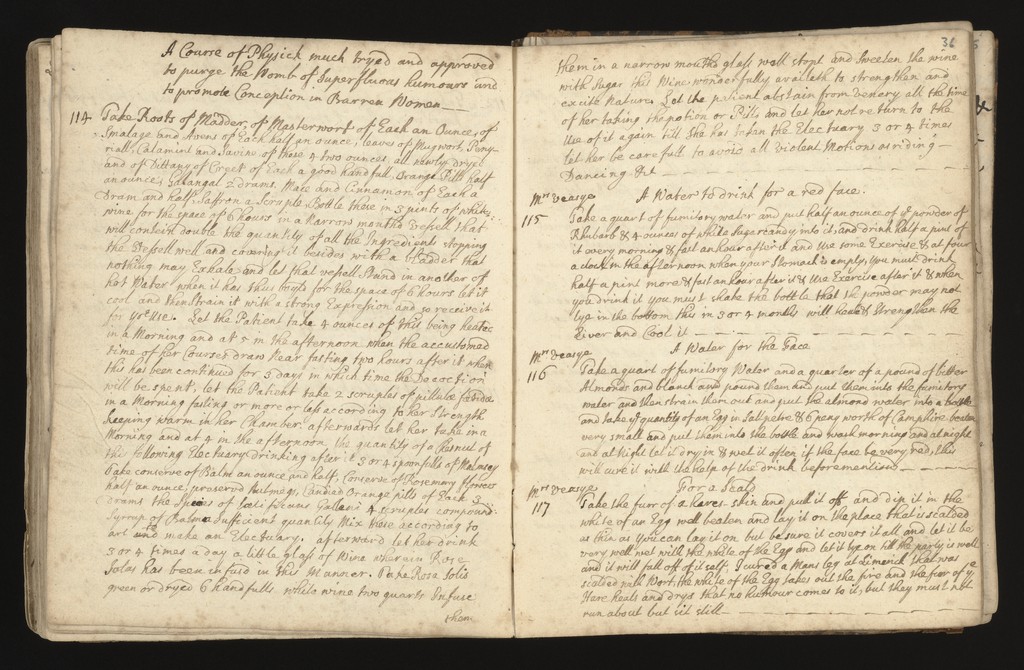 A Course of Physick much tryed and approved
to purge the Womb of Superfluous humours and
to promote Conception in Barren Women
114 Take Roots of Madder, of Masterwort of Each an Ounce, of
Smalage and Avens of Each half an ounce, leaves of Mugwort, Peny-
riall, Calamint and Savine of these 4 two ounces, all newly dryed
and of Dittany of Creet of Each a good handfull, Orange Pills half
an ounce, Galangal 2 drams, Mace and Cinnamon of Each a
Dram and half, Saffron a Scruple, Bottle these in 3 pints of white
wine for the space of 6 hours in a Narrow mouthd Vessell that
will contein double the quantity of all the Ingredients stopping
the Vessell well and covering it besides with a Bladder that
nothing may Exhale and let that vessell Stand in another of
hot Water when it has thus for the space of 6 hours let it
cool and then strain it with a strong Expression and so reserve it
for yr Use. Let the Patient take 4 ounces of this being heated
in a Morning and at 5 in the afternoon when the accustomed
time of her Courses draw Near fasting two hours after it when
this has been continued for 3 days in which time the Decoction
will be spent, let the Patient take 2 scruples of pillulæ
in a Morning fasting or more or less according to her Strength
Keeping warm in her Chamber, afterwards let her take in a
Morning and at 4 in the afternoon the quantity of a Chesnut of
this following Electuary Drinking after it 3 or 4 spoonfulls of Malmsey
Take conserve of Balm an ounce and half, Conserve of Rosemary flowers
half an ounce, preserved Nutmegs, Candied Orange pills of Each 3
drams the Species of Galeni 4 scruples compound
Syrrup of Balm a Sufficient quantity Mix these according to
art to make an Electuary. afterward let her drink
3 or 4 times a day a little glass of Wine wherein Rosa
Solas has been infused in this Manner. Rosa Solis
green or dryed 6 handfulls, white wine two quarts Infuse
them
36
them in a narrow mouthd glass well stopt and Sweeten the wine
with Sugar this Wine wonderfully availeth to strengthen and
excite Nature. Let the patient abstain from Venery all the time
of her taking the potion or Pills and let her not return to the
Use of it again till She has taken the Electuary 3 or 4 times
let her be carefull to avoid all Violent Motions as riding
Dancing &c
Mrs Veasye A Water to drink for a red face.
115 Take a quart of fumitory water and put half an ounce of ye powder of
Rhubarb & 4 ounces of white Sugar candy into it, and drink half a pint of
it every morning & fast an hour after it and Use some Exercise & at four
a clock in the afternoon when your Stomach is empty, you must drink
half a pint more & fast an hour after it & Use Exercise after it & when
you drink it you must shake the bottle that the powder may not
lye in the bottom this in 3 or 4 months will & Strengthen the
Liver and Cool it
Mrs Veasye A Water for the Face
116 Take a quart of fumitory Water and a quarter of a pound of bitter
Almonds and blanch and pound them and put them into the fumitory
water and then strain them out and put the almond water into a bottle
and take ye quantity of an Egg in Salpetre & 6 peny worth of Camphire beaten
very small and put them into the bottle and wash morning and at night
and at Night let it dry in & wet it often if the face be very red, this
will cure it with the help of the drink beforemention'd
Mrs Veasye For a Scald
117 Take the furr of a hares skin and pull it off and dip it in the
white of an Egg well beaten and lay it on the place that is scalded
as thin as you can lay it on but be sure it covers it all, and let it be
very well wet with the white of the Egg and let it lye on till the party is well
and it will fall off of it self. I cured a Mans leg at Limerick that was
scalded with Wort, the white of the Egg takes out the fire and the furr of ye
Hare heals and drys that no humour comes to it, but they must not
run about but sit still